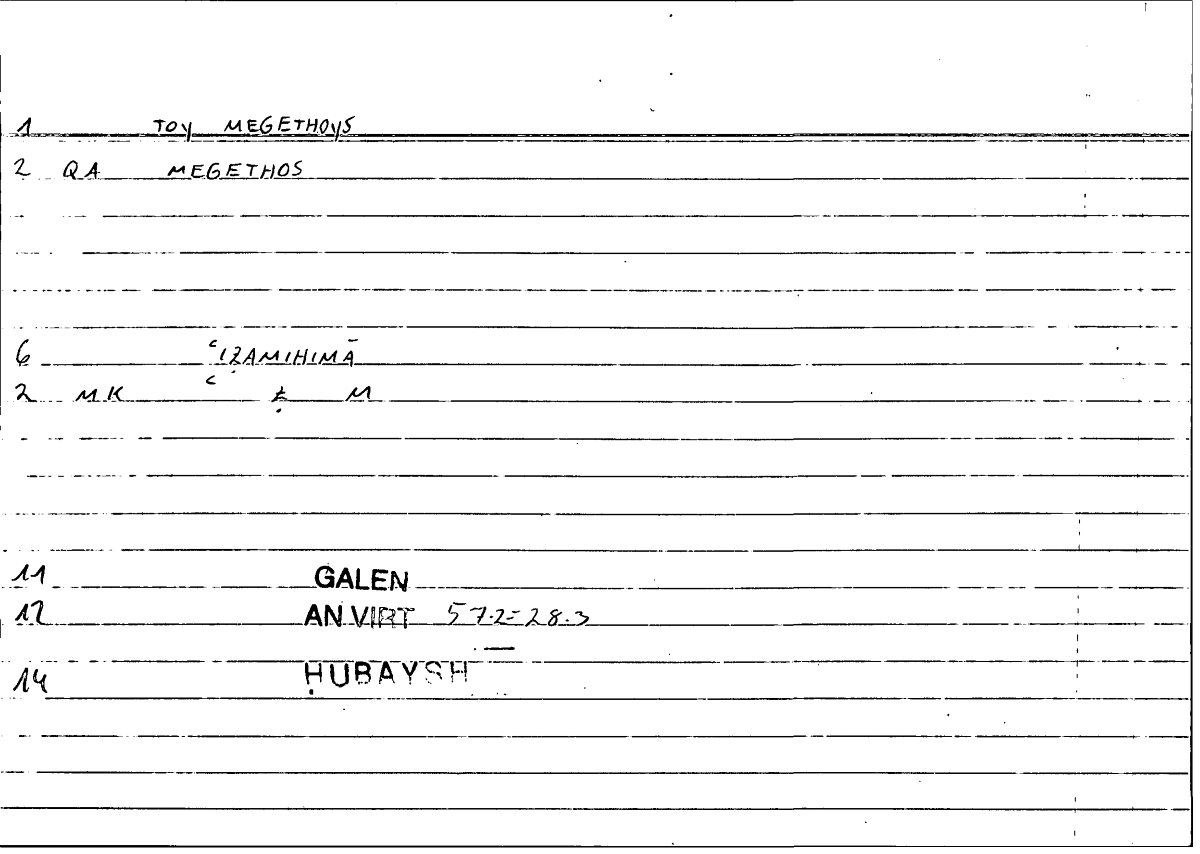 1 TOY MEGETHOYS
2 QA MEGETHOS
6 ʿIẒAMIHIMĀ
2 MK ʿ Ẓ M
11 GALEN
12 AN VIRT 57.2=28.3
14 ḤUBAYSH